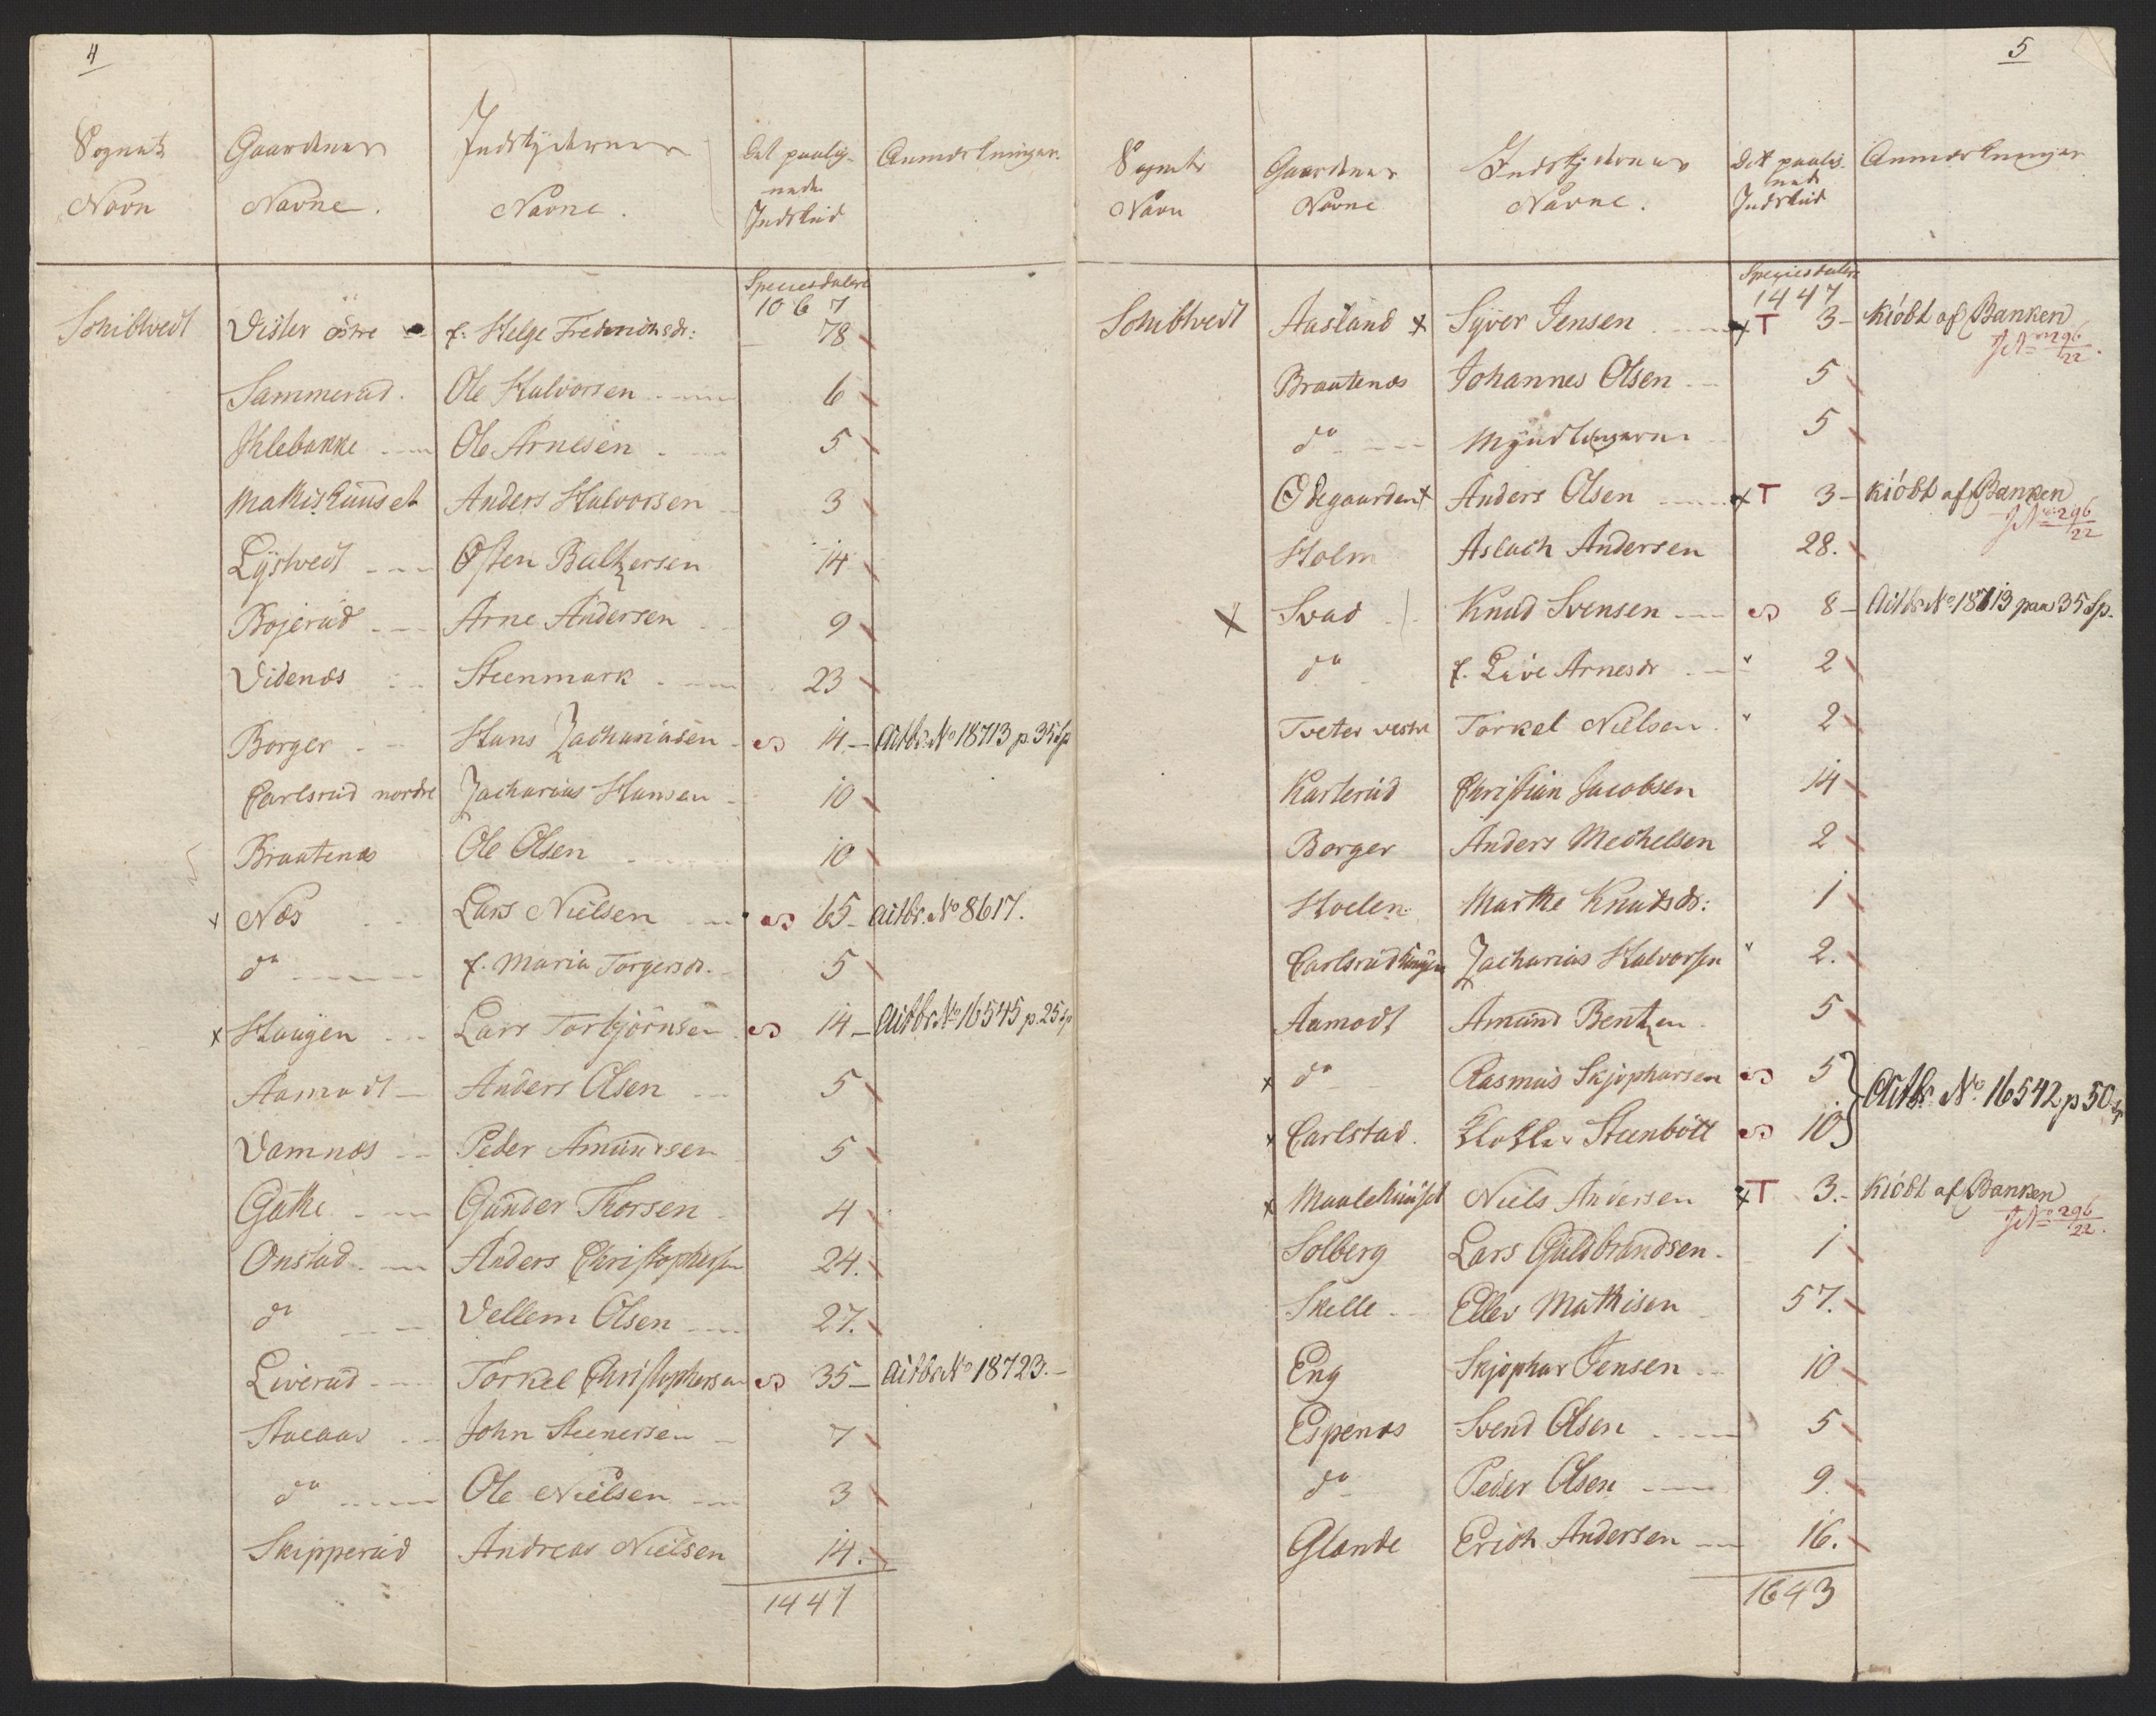 4
Sognets Navn | Gaardenes Navne. | Indskyderens Navne. | Det paalignede Indskud | Anmærkninger.
Speciesdaler
1067
Schibtvedt | Vister östre | E: Helge Fredrichsdr: | 78
Sammerud. | Ole Halvorsen | 6
Ihlebakke | Ole Arnesen | 5
Mathishuuset | Anders Halvorsen | 3
Lystvedt | Østen Baltzersen | 14
Bojerud | Arne Andersen | 9
Videnæs | Steenmark | 23
Borger | Hans Zachariasen | S 14.— | Actbr: No 18713 p. 35 Sp
Carlsrud nordre | Zacharias Hansen | 10
Braatenæs | Ole Olsen | 10
x Næs | Lars Nielsen | S 65— | actbr. No 8617.
do | E. Maria Torgersdr. | 5
x Haugen | Lars Torbjörnsen | S 14— | Actbr No 16545 p. 25 sp
Aamodt | Anders Olsen | 5
Damnæs | Peder Amundsen | 5
Gathe | Gunder Thorsen | 4
Onstad | Anders Christophersen | 24.
do | Vellem Olsen | 27.
Liverud | Torkel Christophersen | S 35— | Actbr No 18723.—
Stucaas | John Steenersen | 7
do | Ole Nielsen | 3
Skipperud | Andreas Nielsen | 14.
1447
5
Sognets Navn | Gaardenes Navne | Indskydernes Navne. | Det paalignede Indskud | Anmærkninger
Speciesdaler
1447
Schibtvedt | Aasland x | Syver Jensen | x T 3— | kióbt af Banken
J No 296/22.
Braatenæs | Johannes Olsen | 5
do | Myndlingerne | 5
Ödegaarden x | Anders Olsen | x T 3— | kióbt af Banken
J No 296/22
Holm | Aslach Andersen | 28.
x Svad | Knud Svensen | S 8— | Actbr No 18713 paa 35 Sp.
do | E. Live Arnesdr | 2
Tveter vestre | Torkel Nielsen. | 2
Karlerud | Christian Jacobsen | 14
Borger | Anders Mechelsen | 2
Hoelen | Marthe Knutsdr: | 1
Carlsrud | Zacharias Halvorsen | 2.
Aamodt | Amund Bentzen. | 5
x do | Rasmus Skjophorsen | S 5
x Carlstad. | Steenböck | S 10 } Actbr No 16542 p 50 Sp
x Maalehuuset | Niels Andersen | x T 3.— | kióbt af Banken
J No 296/22.
Solberg | Lars Guldbrandsen. | 1
Skelle | Ellev Mathisen | 57.
Eng | Skjophor Jensen | 10
Espenæs | Svend Olsen | 5
do | Peder Olsen | 9.
Glende | Erich Andersen | 16.
1643